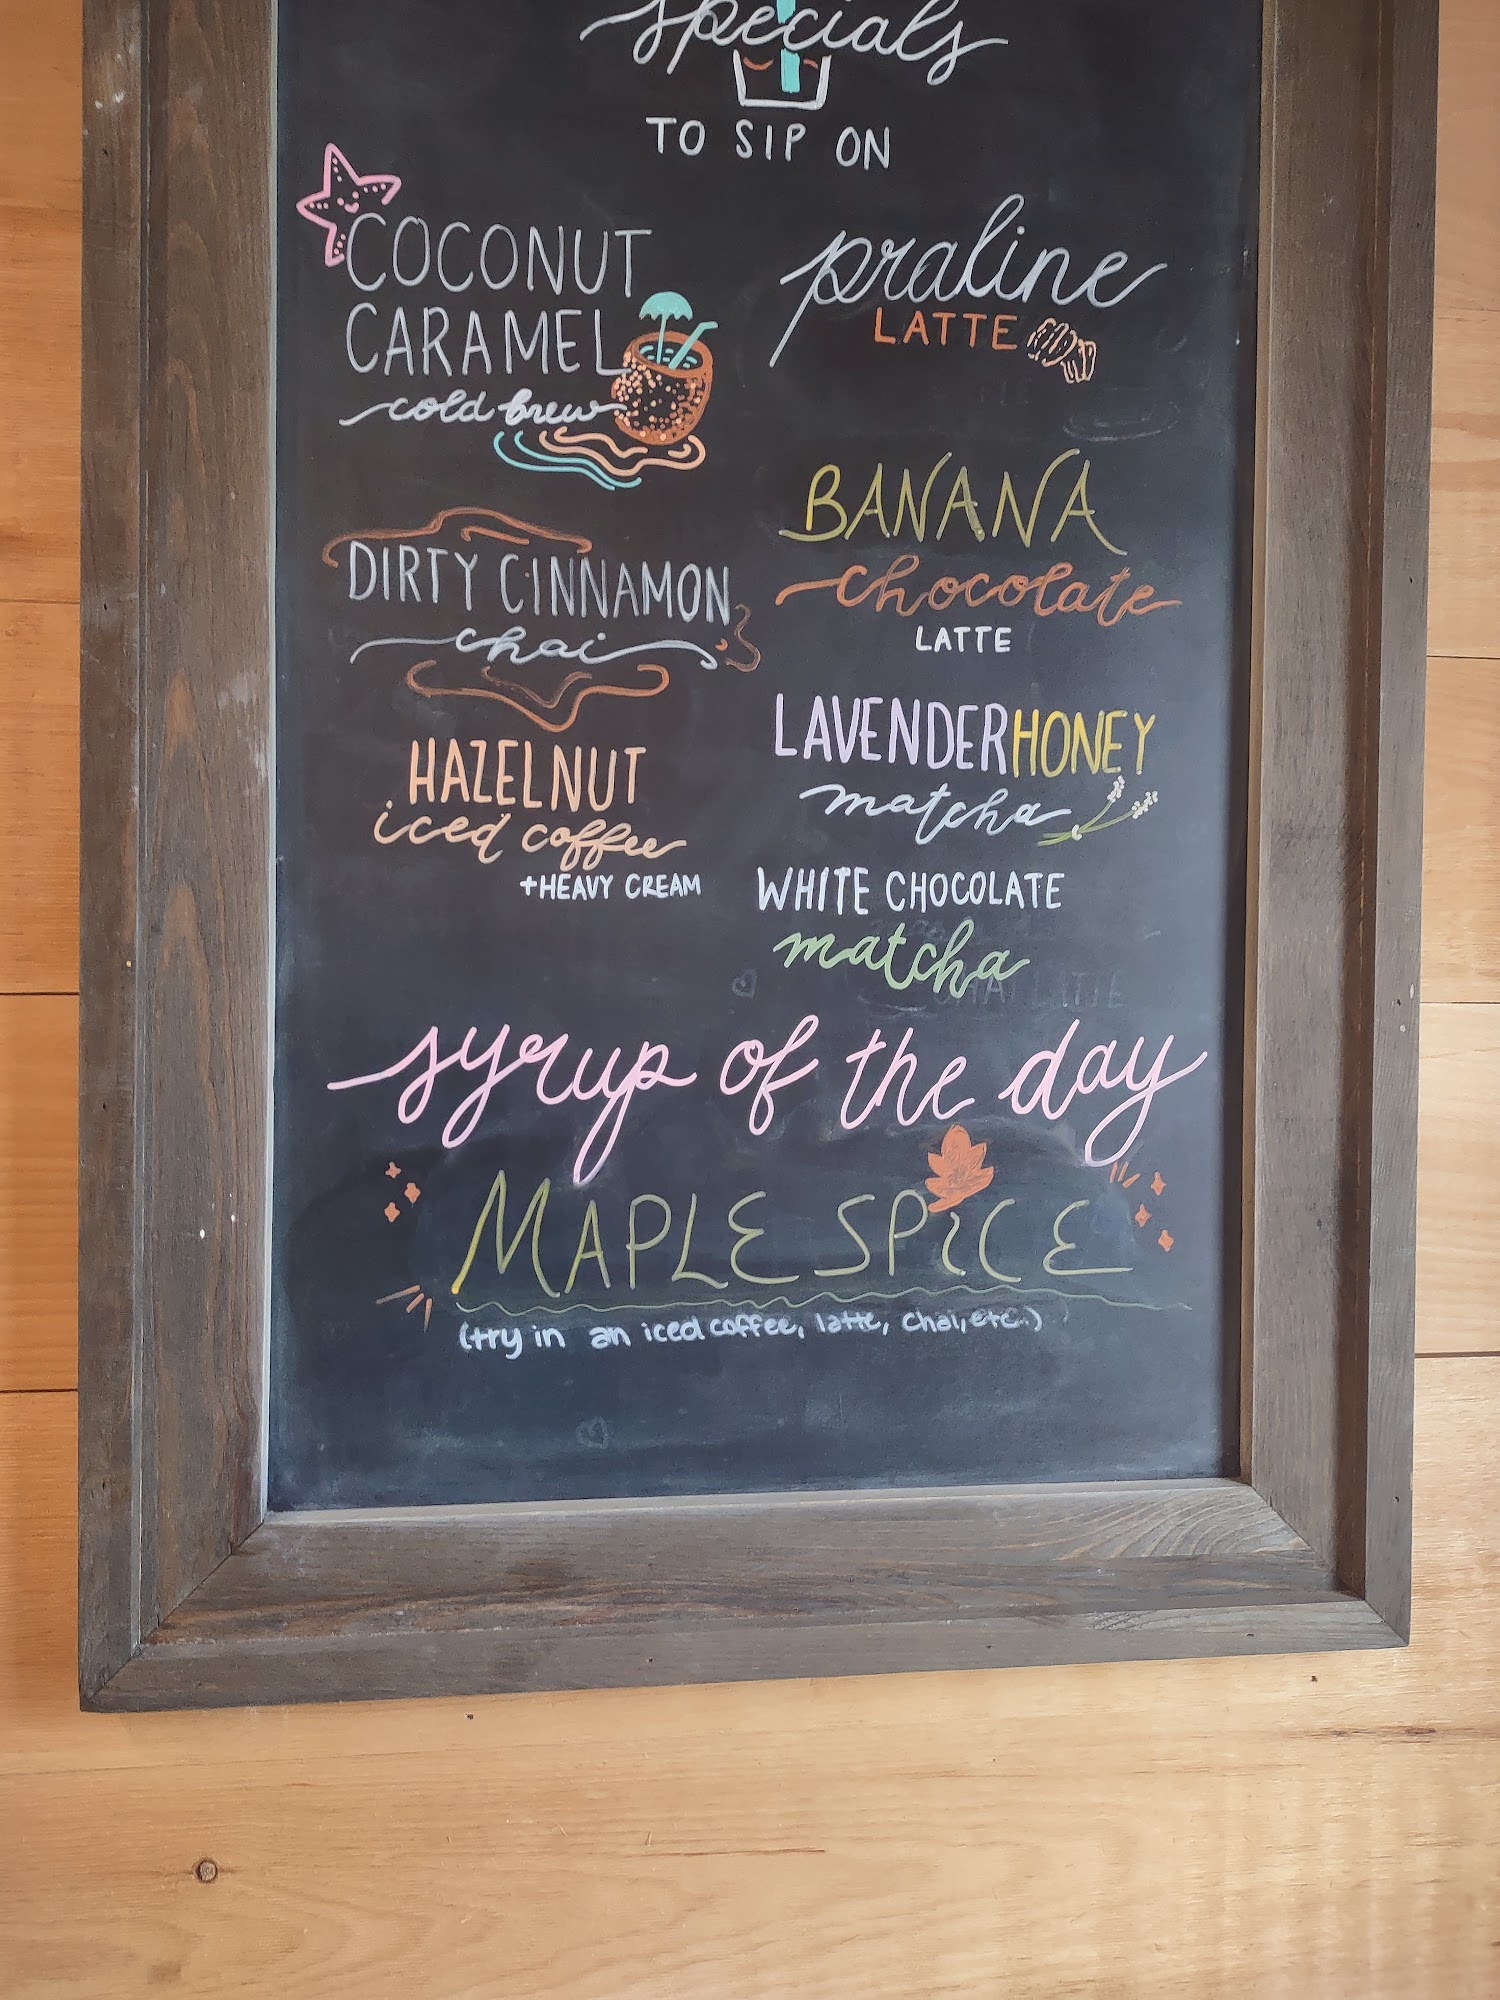 specials
TO SIP ON
COCONUT
CARAMEL
cold brew
DIRTY CINNAMON
chai
HAZELNUT
iced coffee
+HEAVY CREAM
praline
LATTE
BANANA
chocolate
LATTE
LAVENDERHONEY
matcha
WHITE CHOCOLATE
matcha
syrup of the day
MAPLE SPiCE
(try in an iced coffee, latte, chai, etc..)